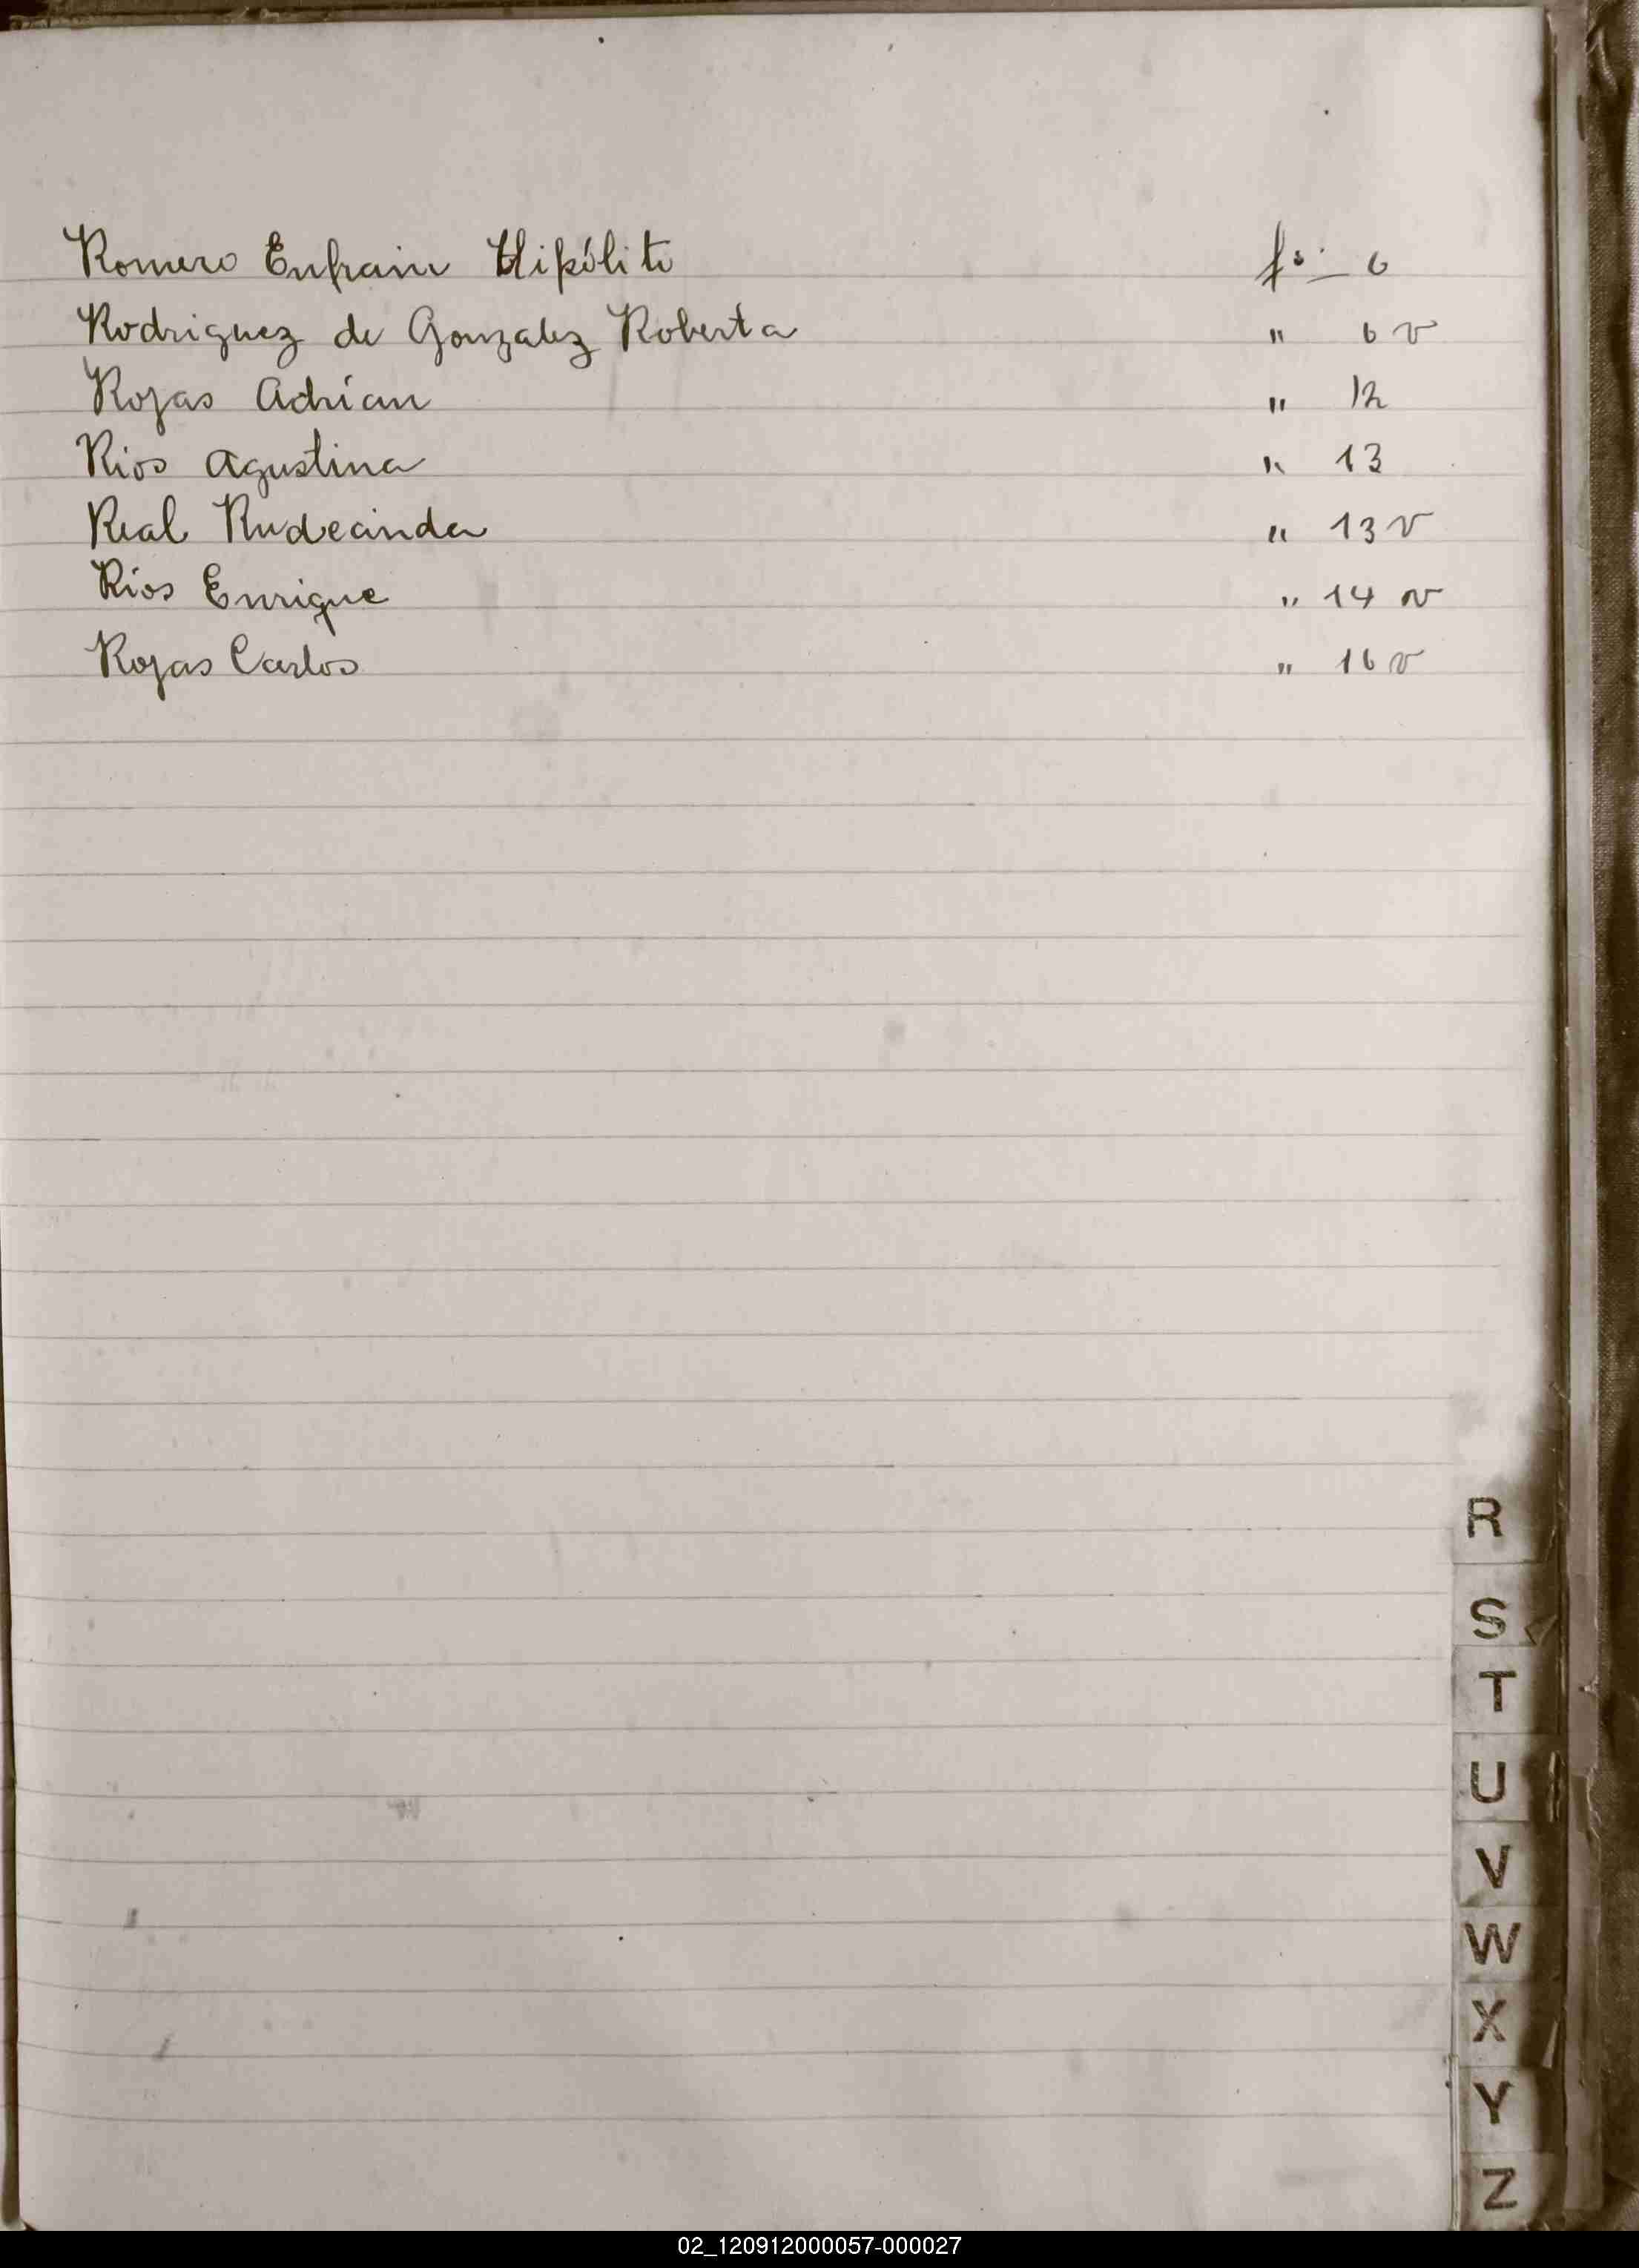 Romero Enfrain Hipólito fs. 6
Rodriguez de Gonzalez Roberta " 6 v
Rojas Adrían " 12
Rios Agustina " 13
Real Rudecinda " 13 v
Rios Enrique " 14 v
Rojas Carlos " 16 v
R
S
T
U
V
W
X
Y
Z
02_120912000057-000027